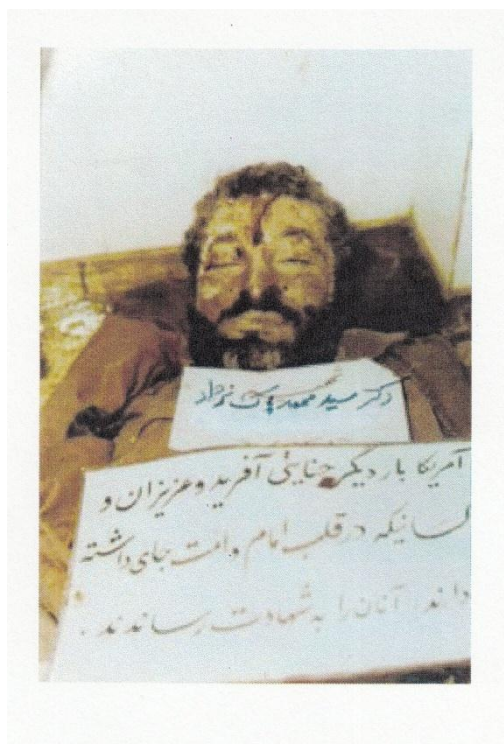 دکتر سید محمد پاک نژاد
آمریکا بار دیگر جنایتی آفرید و عزیزان و
کسانیکه در قلب امام و امت جای داشته
داند، آنان را به شهادت رساندند.